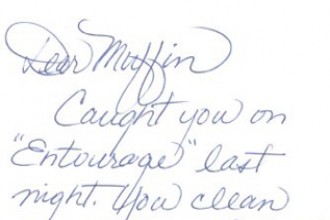 Dear Muffin
Caught you on
"Entourage" last
night. You clean